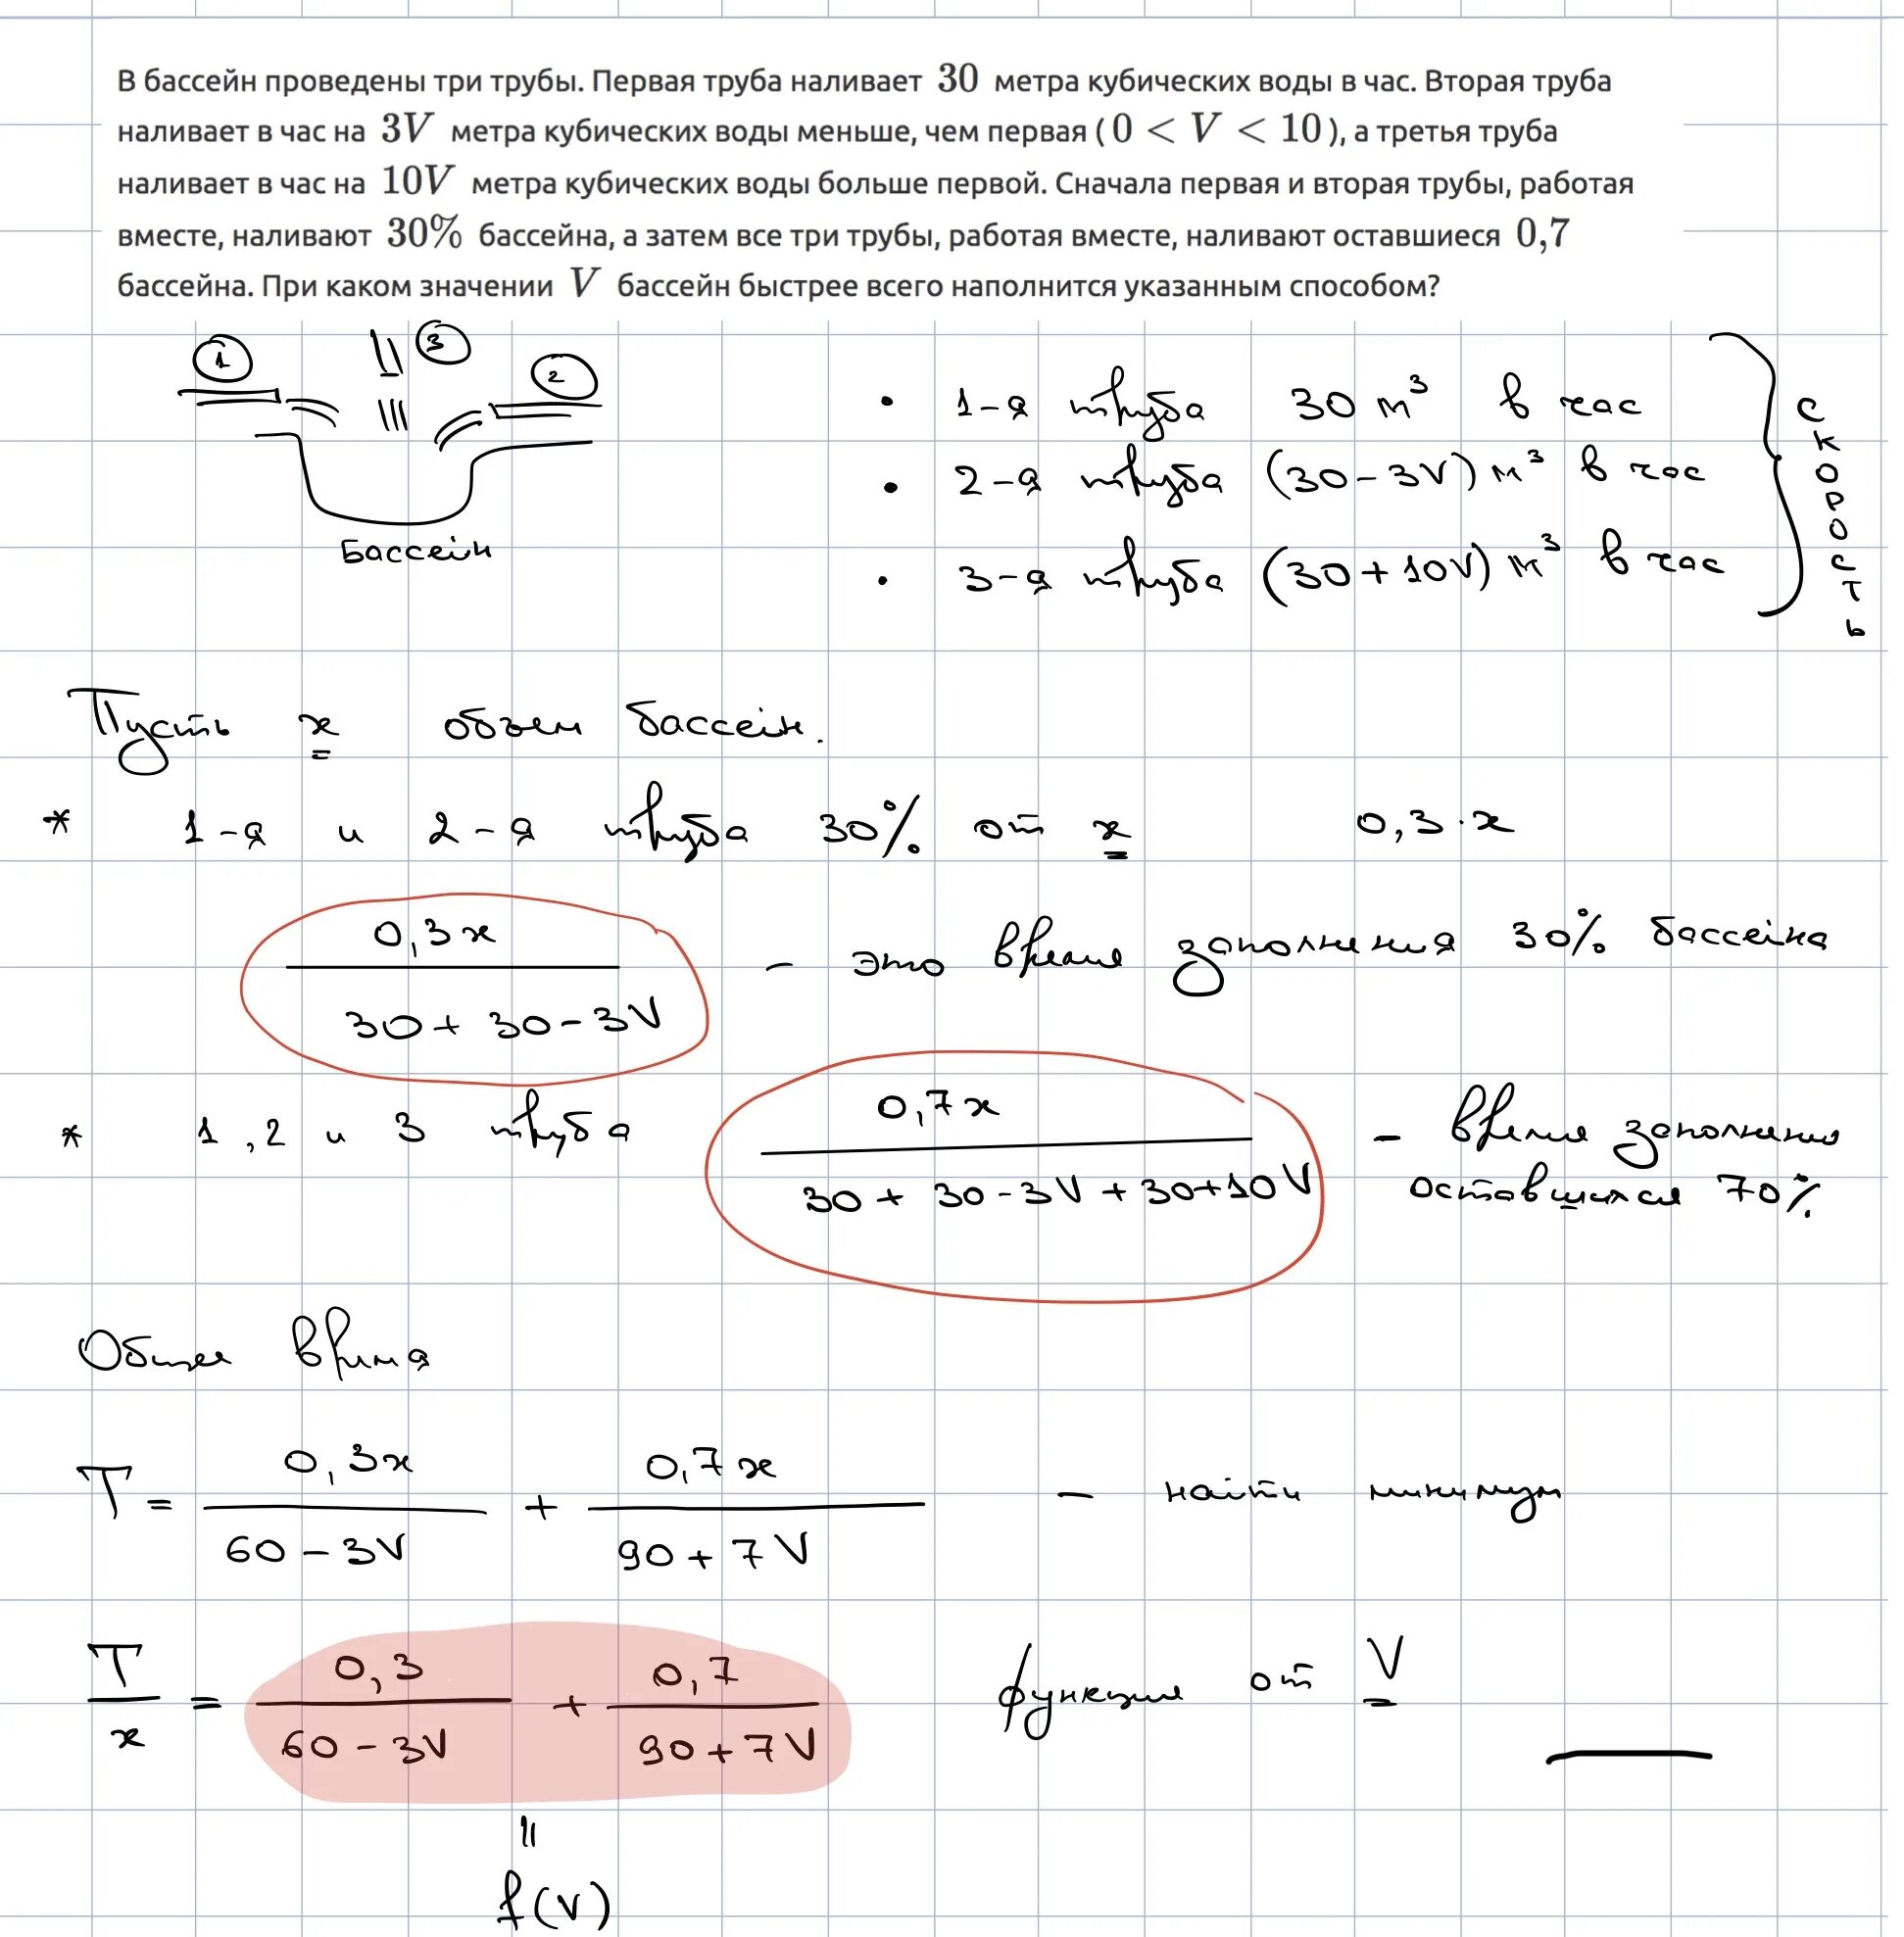 В бассейн проведены три трубы. Первая труба наливает 30 метра кубических воды в час. Вторая труба
наливает в час на 3V метра кубических воды меньше, чем первая ( 0 < V < 10 ), а третья труба
наливает в час на 10V метра кубических воды больше первой. Сначала первая и вторая трубы, работая
вместе, наливают 30% бассейна, а затем все три трубы, работая вместе, наливают оставшиеся 0,7
бассейна. При каком значении V бассейн быстрее всего наполнится указанным способом?
1 3 2
Бассейн
• 1-я труба 30 м³ в час
• 2-я труба (30-3V) м³ в час
• 3-я труба (30+10V) м³ в час
скорость
Пусть x объем бассейн.
* 1-я и 2-я труба 30% от x 0,3·x
0,3x / (30+30-3V) - это время заполнения 30% бассейна
* 1,2 и 3 труба 0,7x / (30+30-3V+30+10V) - время заполнения
оставшихся 70%
Общее время
T = 0,3x / (60-3V) + 0,7x / (90+7V) - найти минимум
T/x = 0,3 / (60-3V) + 0,7 / (90+7V) функция от V
=
f(V)